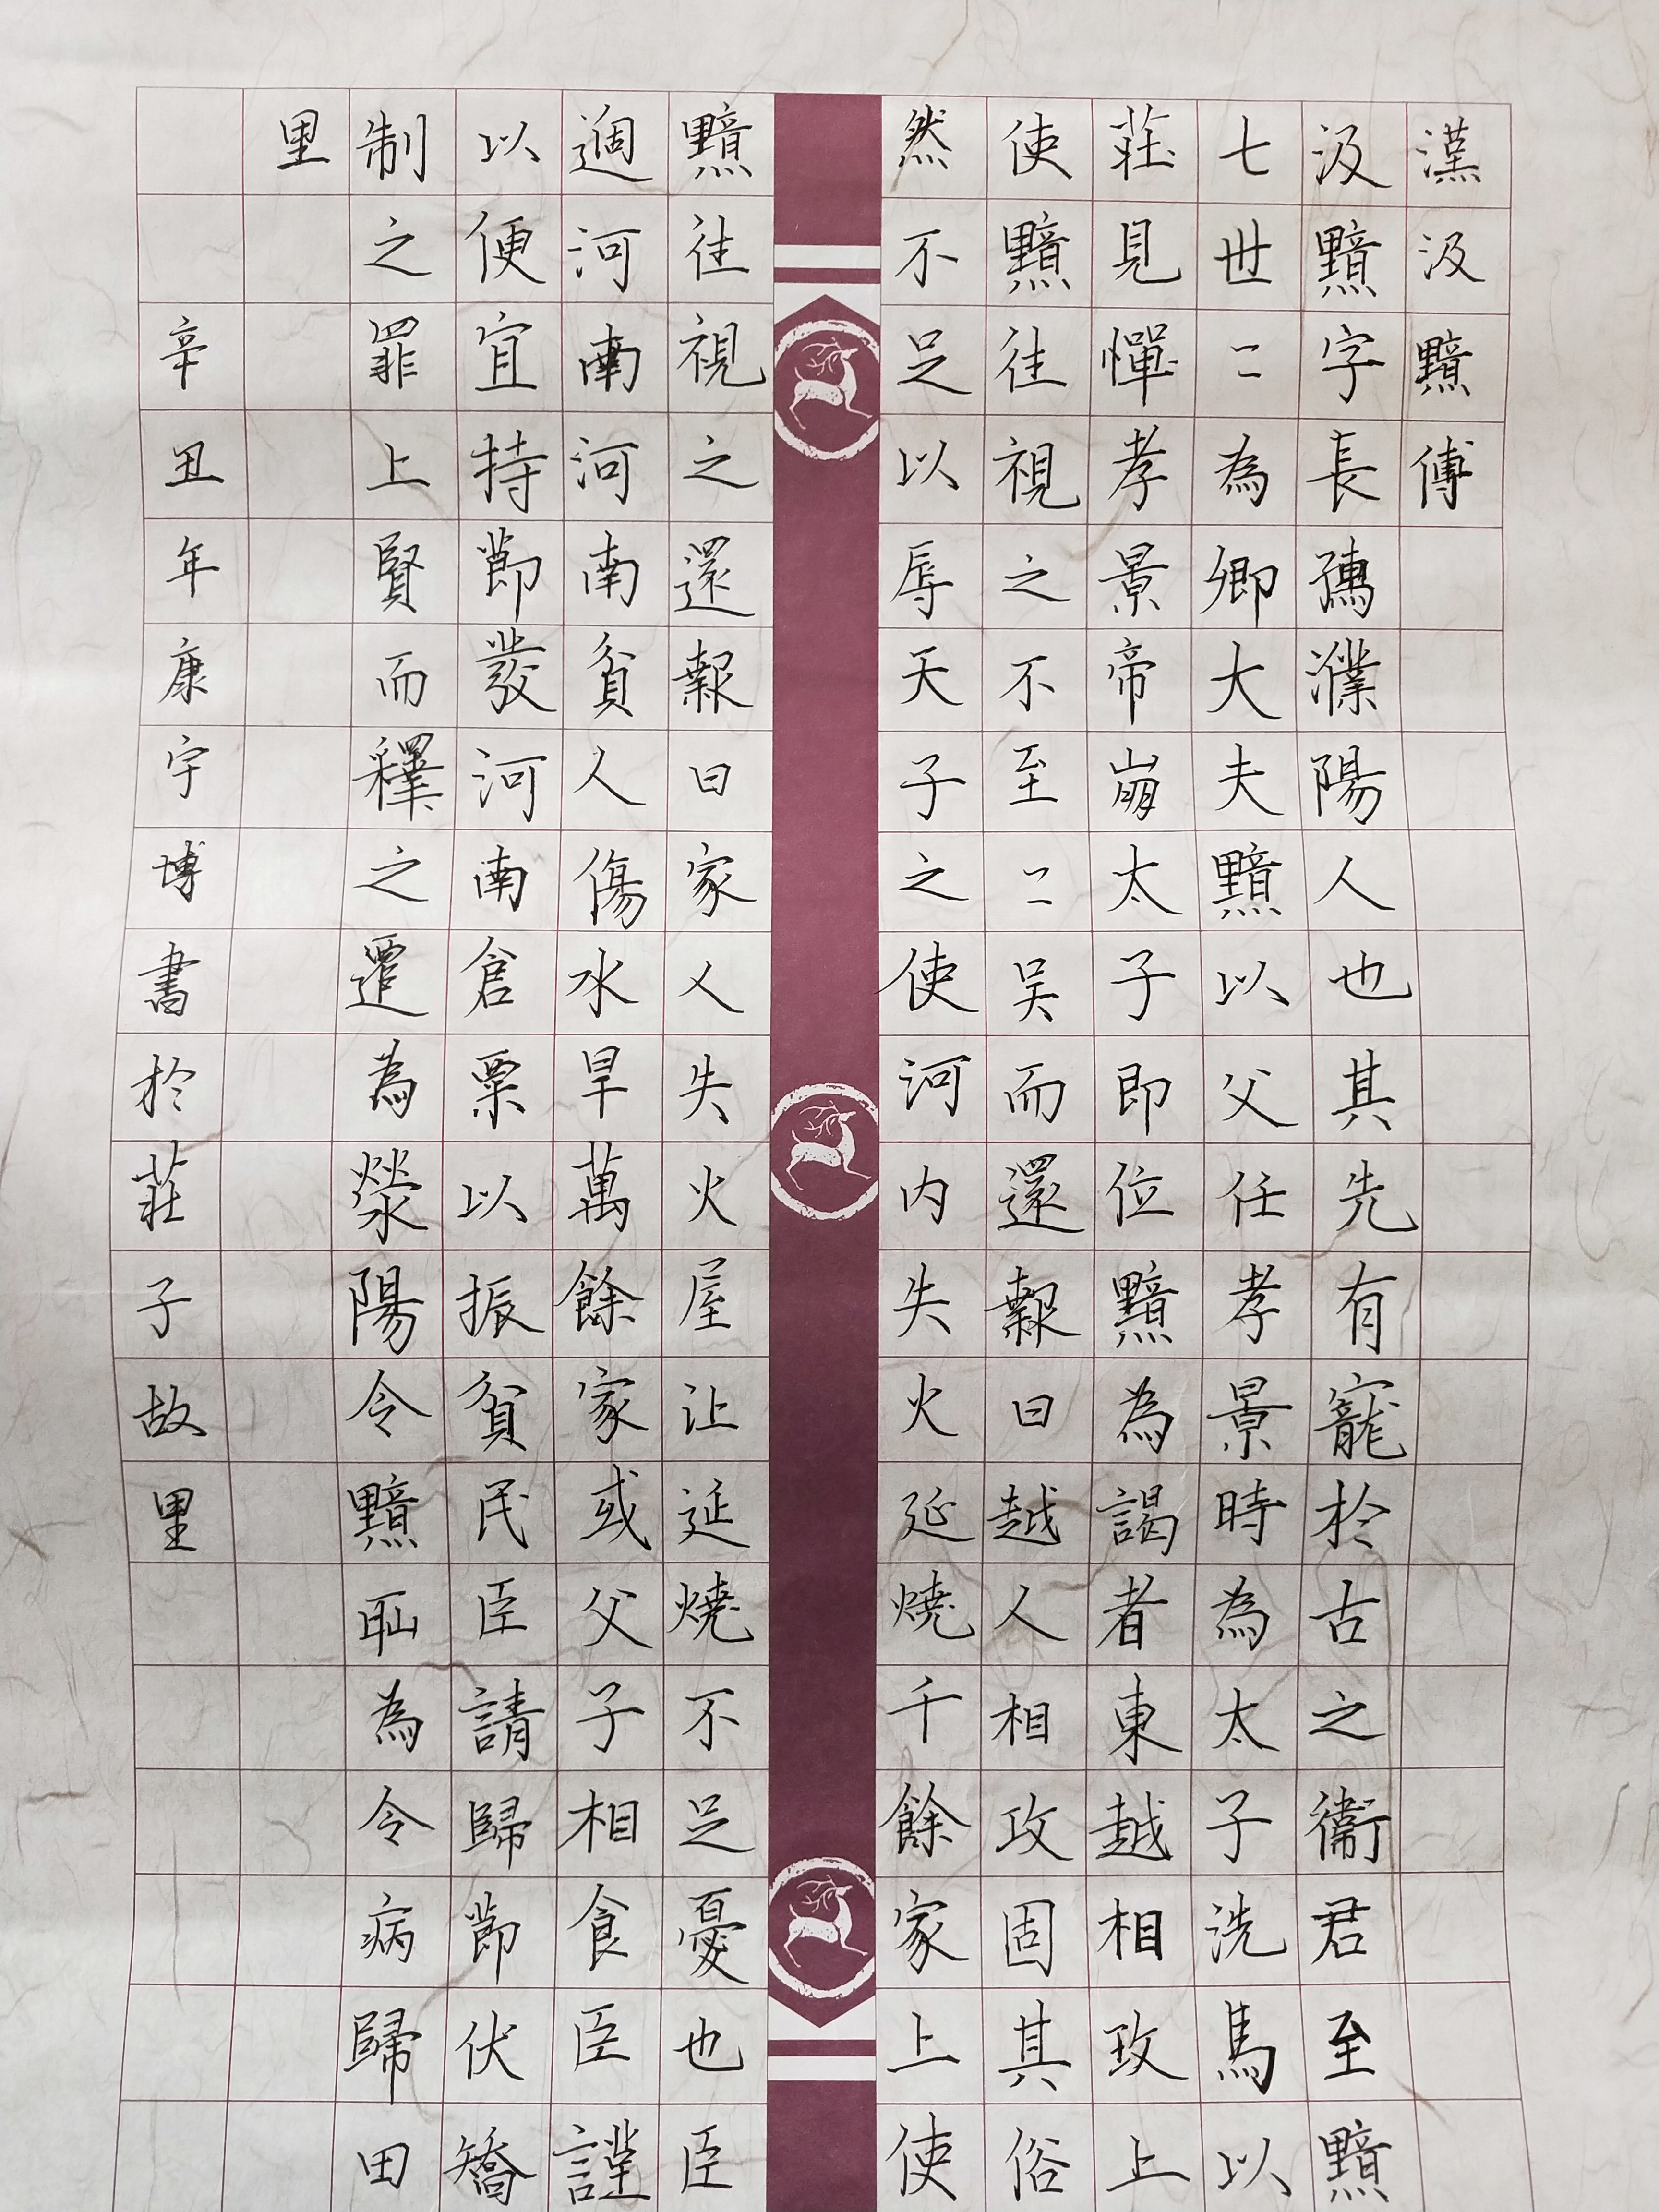 漢汲黯傳
汲黯字長孺濮陽人也其先有寵於古之衞君至黯
七世〻為卿大夫黯以父任孝景時為太子洗馬以
莊見憚孝景帝崩太子即位黯為謁者東越相攻上
使黯往視之不至〻吴而還報曰越人相攻固其俗
然不足以辱天子之使河内失火延燒千餘家上使
黯往視之還報曰家人失火屋比延燒不足憂也臣
過河南河南貧人傷水旱萬餘家或父子相食臣謹
以便宜持節發河南倉粟以振貧民臣請歸節伏矯
制之罪上賢而釋之遷為滎陽令黯恥為令病歸田
里
辛丑年康宇博書於莊子故里